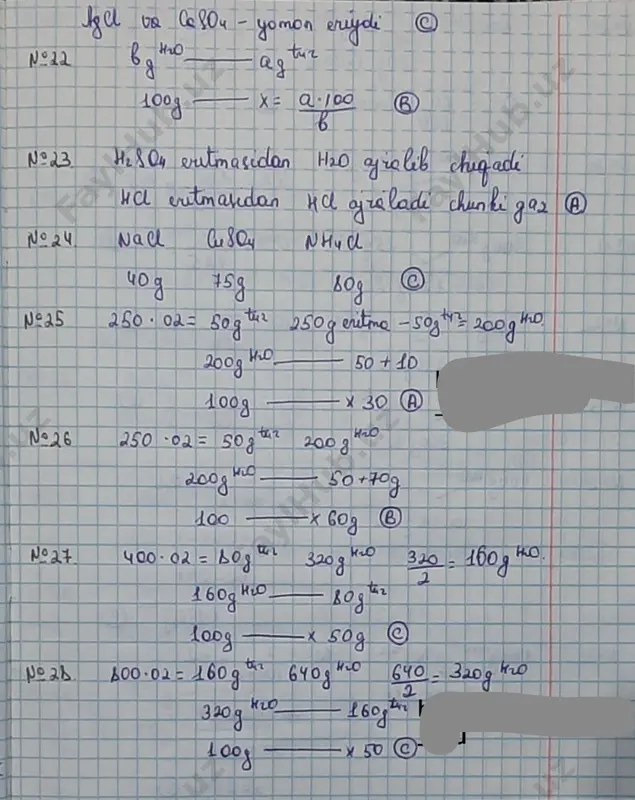 AgCl va CaSO4 - yomon eriydi Ⓒ
№22 bg H2O —— ag tuz
100g —— x = a·100/b Ⓑ
№23 H2SO4 eritmasidan H2O ajralib chiqadi
HCl eritmasidan HCl ajraladi chunki gaz Ⓐ
№24 NaCl CuSO4 NH4Cl
40g 75g 80g Ⓒ
№25 250·02 = 50g tuz 250g eritma - 50g tuz = 200g H2O.
200g H2O —— 50+10
100g —— x 30 Ⓐ
№26 250·02 = 50g tuz 200g H2O
200g H2O —— 50+70g
100 —— x 60g Ⓑ
№27 400·02 = 80g tuz 320g H2O 320/2 = 160g H2O.
160g H2O —— 80g tuz
100g —— x 50g Ⓒ
№28 800·02 = 160g tuz 640g H2O 640/2 = 320g H2O
320g H2O —— 160g tuz
100g —— x 50 Ⓒ
FaylHub.uz